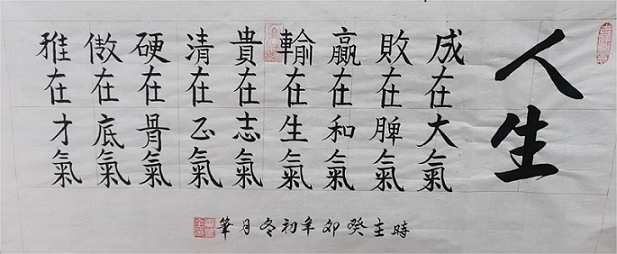 人生
成在大氣
敗在脾氣
贏在和氣
輸在生氣
貴在志氣
清在正氣
硬在骨氣
傲在底氣
雅在才氣
時在癸卯年初冬月 筆